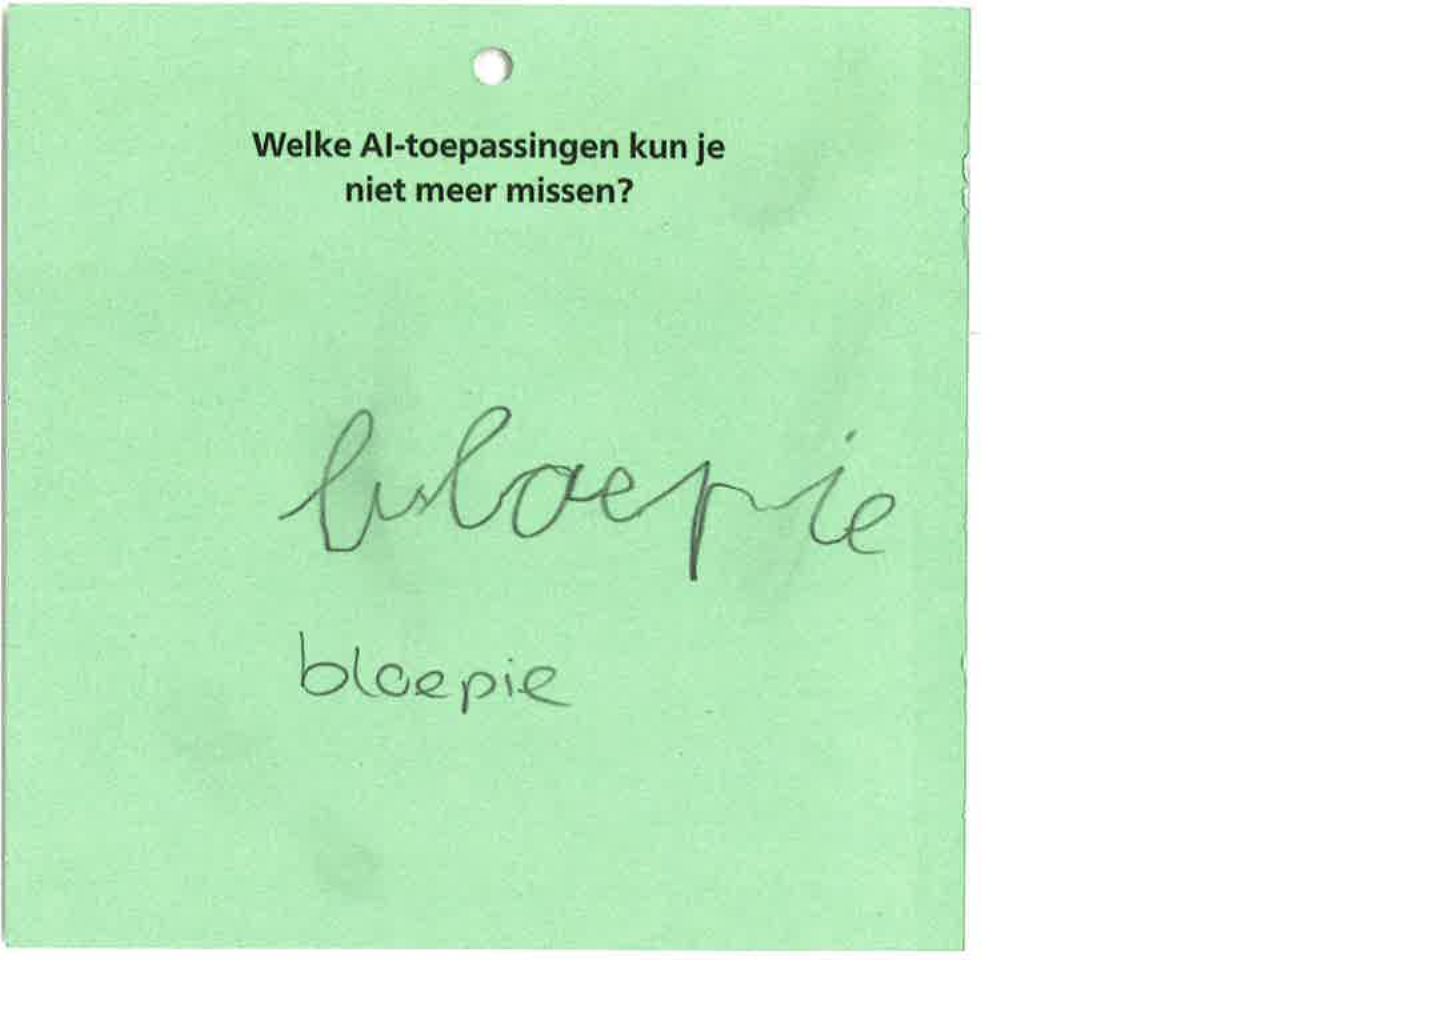 Welke AI-toepassingen kun je
niet meer missen?
bloepie
bloepie